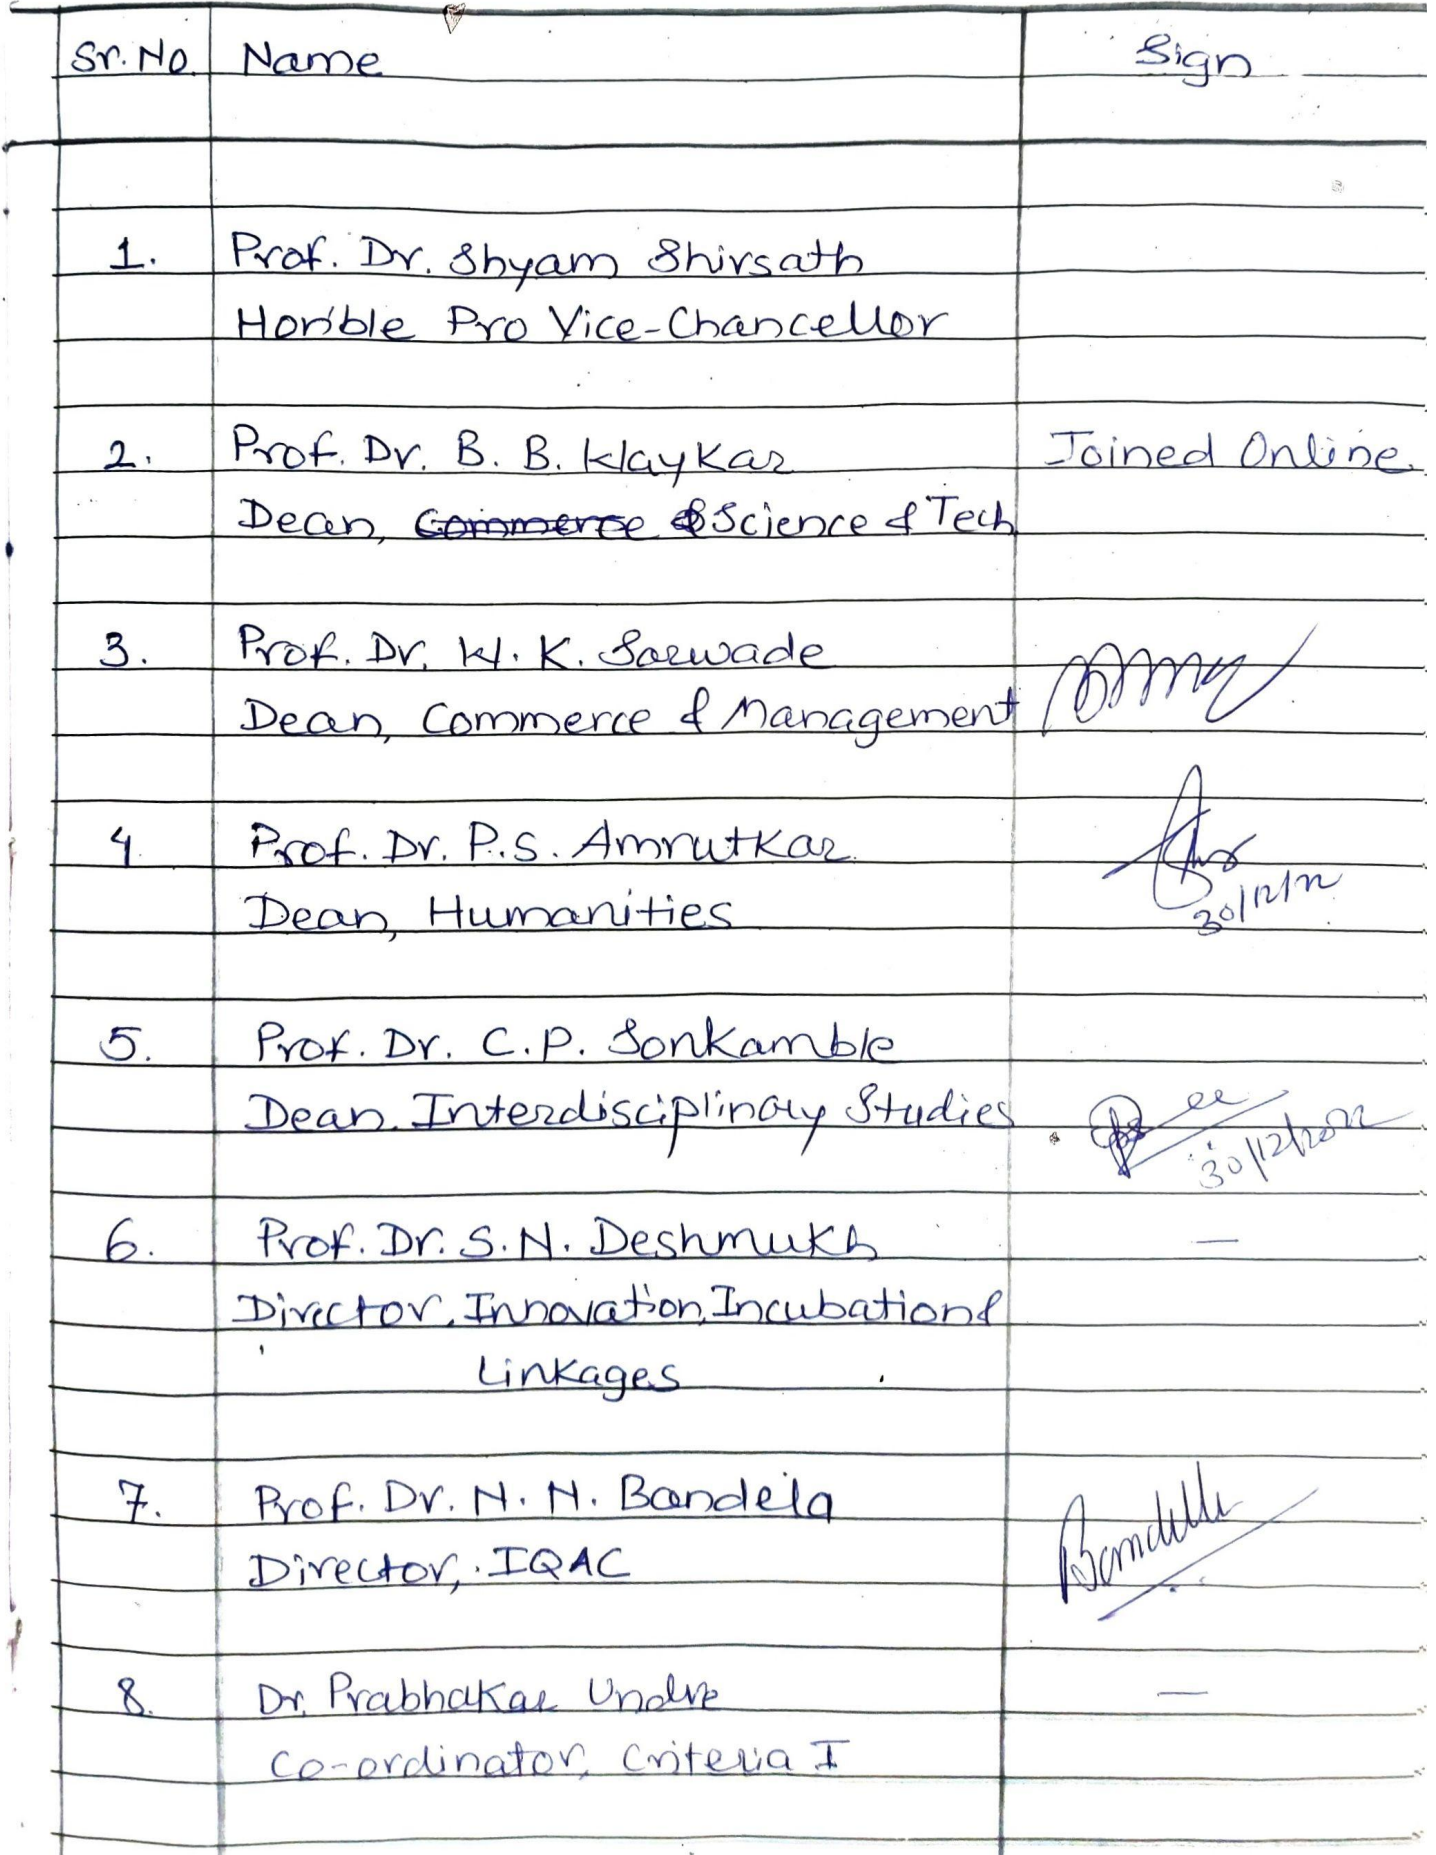 Sr. No. Name Sign
1. Prof. Dr. Shyam Shirsath
Hon'ble Pro Vice-Chancellor
2. Prof. Dr. B. B. Waykar Joined Online
Dean, Commerce & Science & Tech
3. Prof. Dr. W. K. Sarwade
Dean, Commerce & Management
4. Prof. Dr. P.S. Amrutkar
30/12/22
Dean, Humanities
5. Prof. Dr. C.P. Sonkamble
Dean, Interdisciplinary Studies
30/12/2022
6. Prof. Dr. S. N. Deshmukh —
Director, Innovation, Incubation &
Linkages
7. Prof. Dr. N. N. Bandela
Director, IQAC
8. Dr. Prabhakar Undre —
Co-ordinator, Criteria I